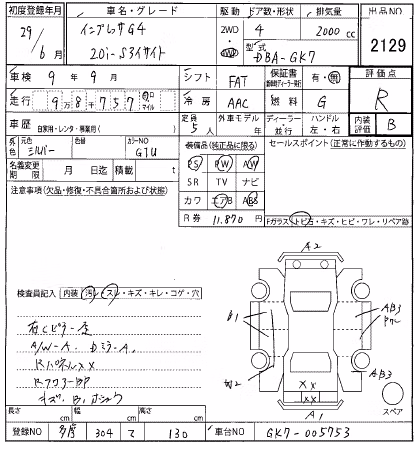 初度登録年月 車名・グレード 駆動 ドア数・形状 排気量 出品NO
29/6月 インプレッサG4 2WD 4 2000 cc 2129
2.0i-Sアイサイト 4WD 型式 DBA-GK7
車検 9年9月 シフト FAT 保証書 有・無 評価点
走行 98757 km マイル 冷房 AAC 燃料 G R
車歴 自家用・レンタ・移動用( ) 定員 5人 外車モデル年 ディーラー・並行 ハンドル 左・右 内装評価 B
外色 元色 シルバー 色替 カラーNO GTU 装備品(純正品に限る) セールスポイント(正常に作動するもの)
名義変更期限 月 日迄 積載 t PS PW AW
注意事項(欠品・修復・不具合箇所および状態) SR TV ナビ
カワ エアB ABS
R券 11,870円 Fガラス(トビ石・キズ・ヒビ・ワレ・リペア跡
A2
検査員記入 内装(汚れ・スレ・キズ・キレ・コゲ・穴
B1 AB3
右Cピラー歪
A/W-A. DミラーA.
RパネルXX W2 AB3
RフロアーBP XX
スペア
長さ cm 幅 cm 高さ cm A1
登録NO 多摩 304 て 130 車台NO GK7-005753